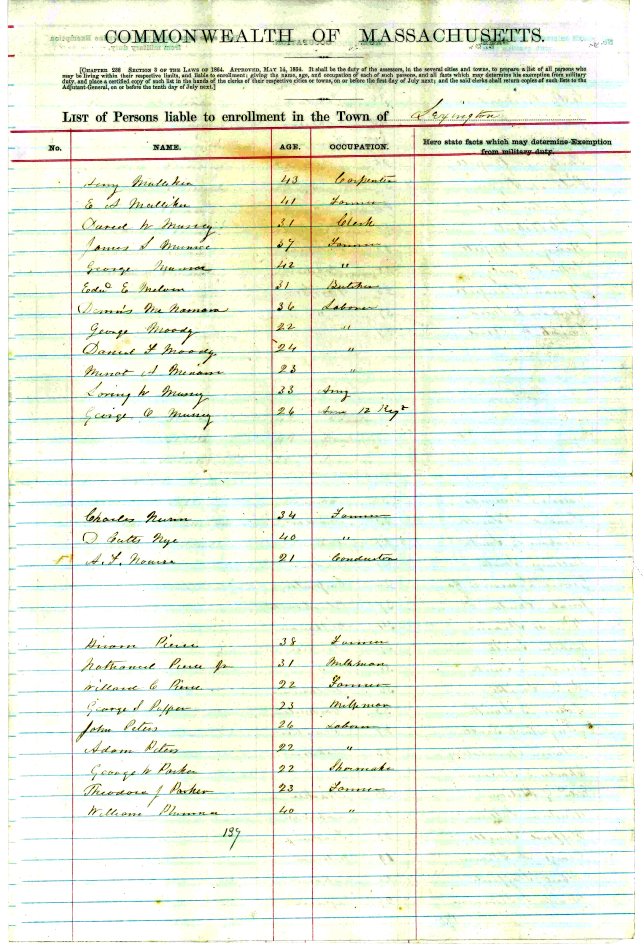 COMMONWEALTH OF MASSACHUSETTS.
[CHAPTER 238 SECTION 3 OF THE LAWS OF 1864. APPROVED, MAY 14, 1864. It shall be the duty of the assessors, in the several cities and towns, to prepare a list of all persons who
may be living within their respective limits, and liable to enrollment; giving the name, age, and occupation of each of such persons, and all facts which may determine his exemption from military
duty, and place a certified copy of such list in the hands of the clerks of their respective cities or towns, on or before the first day of July next; and the said clerks shall return copies of such lists to the
Adjutant-General, on or before the tenth day of July next.]
LIST OF PERSONS liable to enrollment in the Town of Lexington
No. NAME. AGE. OCCUPATION. Here state facts which may determine Exemption
from military duty.
Mulliken 43 Carpenter
E A Mulliken 41 Farmer
David W Muzzey 31 Clerk
James S Munroe 37 Farmer
George Munroe 42 "
Edwd E Melvin 31 Butcher
Dennis McNamara 36 Laborer
George Moody 22 "
Daniel F Moody 24 "
Minot A Meriam 23 "
Loring W Muzzey 33 Army
George E Muzzey 26 12 Regt
Charles Nunn 34 Farmer
Nye 40 "
A. F. Nourse 21 Conductor
Hiram Pierce 38 Farmer
Nathaniel Pierce Jr 31 Milkman
Willard C Pierce 22 Farmer
George S Pepper 23 Milkman
John Peters 26 Laborer
Adam Peters 22 "
George W Parker 22 Shoemaker
Theodore J Parker 23 Farmer
William Plumer 40 "
139